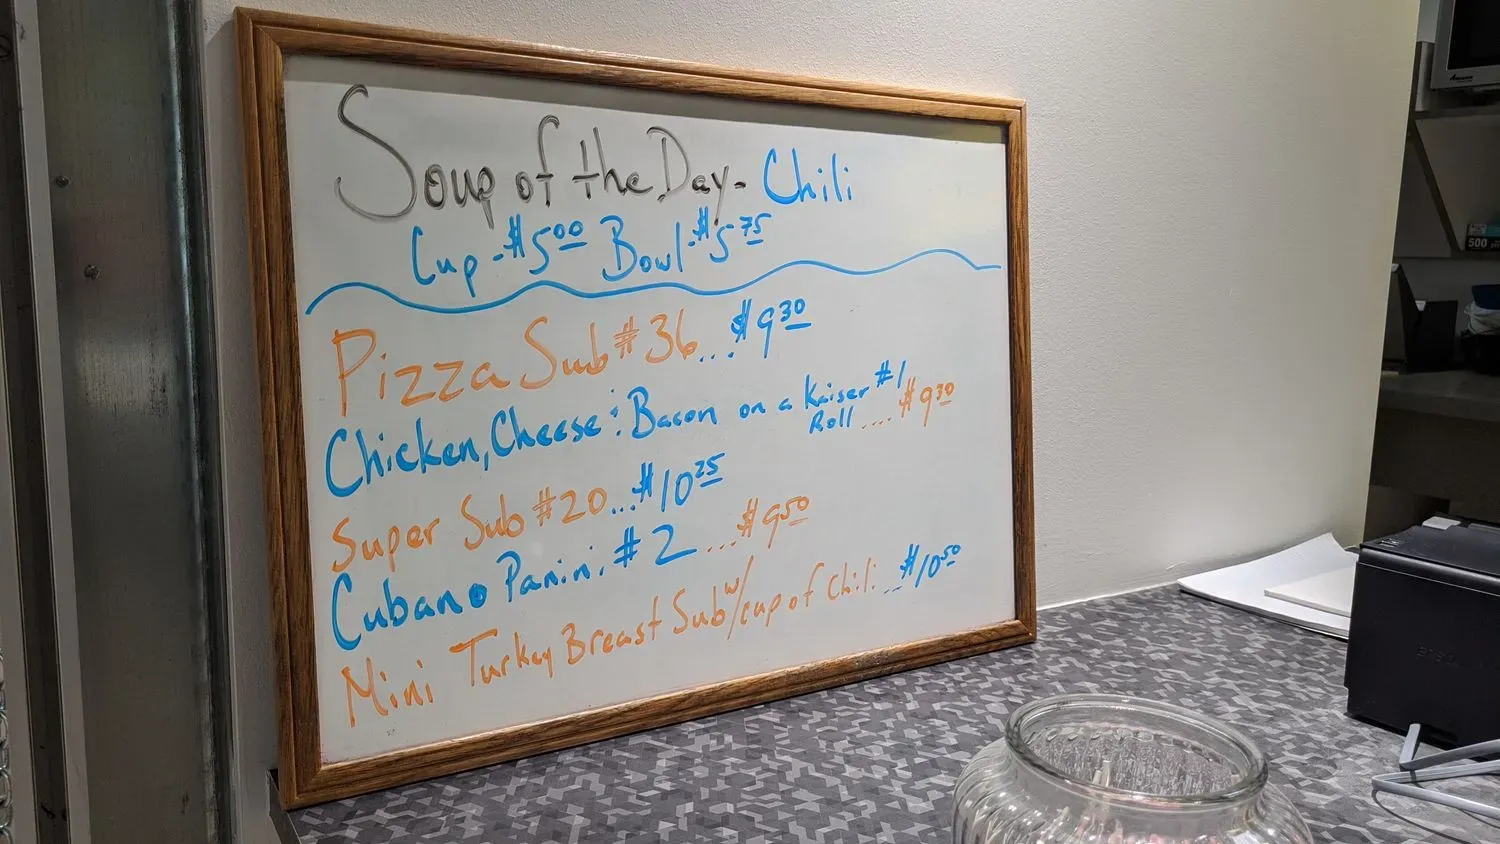 Soup of the Day - Chili
Cup - $5.00 Bowl - $5.75
Pizza Sub #36... $9.30
Chicken, Cheese & Bacon on a Kaiser #1
Roll .... $9.30
Super Sub #20... $10.25
Cubano Panini #2 .... $9.50
Mini Turkey Breast Sub w/ cup of Chili... $10.50
500